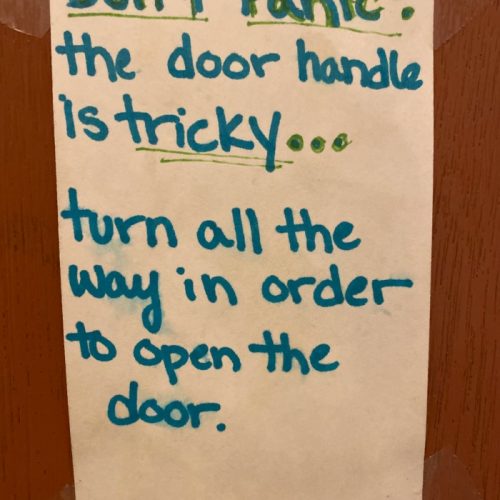 Don't Panic.
the door handle
is tricky...
turn all the
way in order
to open the
door.